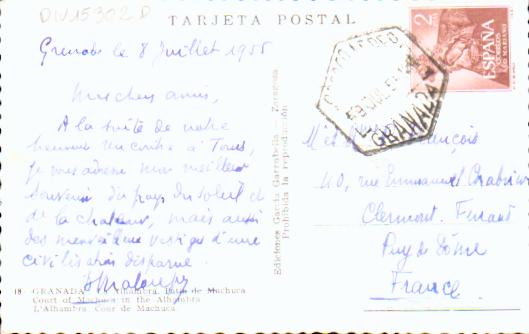 DN15302 D
TARJETA POSTAL
Grenade le 8 Juillet 1955
Mes chers amis,
A la suite de notre
heureuse rencontre à
je vous adresse mon meilleur
souvenir du pays du soleil et
de la chaleur, mais aussi
des merveilleux vestiges d'une
civilisation disparue.
18 GRANADA. La Alhambra. Patio de Machuca
Court of Machuca in the Alhambra
L'Alhambra. Cour de Machuca
Ediciones García Garrabella - Zaragoza
Prohibida la reproducción
GRANADA
2
ESPAÑA
CORREOS
François
40, rue Emmanuel Chabrier
Clermont-Ferrand
Puy de Dôme
France